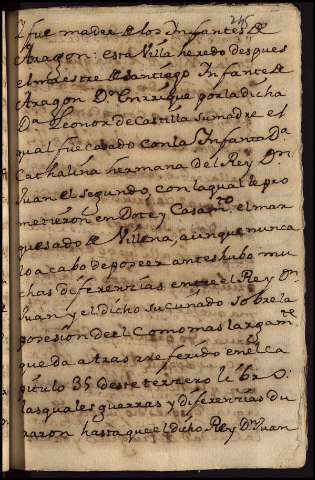 245
q̃ fue madre de los Infantes de
Aragon: esta Villa heredo despues
el maestre de Santiago Infante de
Aragon Dn Enrrique por la dicha
Da Leonor de Castilla su madre el
qual fue casado con la Infanta Da
Cathalina hermana del Rey Dn
Juan el segundo, con la qual le pro
metieron en Dote y Casamto. el mar
quesado de Villena, aunque nunca
lo acabo de poseer antes hubo mu
chas diferenzias entre el Rey Dn
Juan y el dicho su cuñado sobre la
posesion de el Como mas largamte
queda atras rreferido en el ca
pitulo 35 deste terzero libro:
las quales guerras y diferenzias du
raron hasta que el dicho Rey Dn Juan